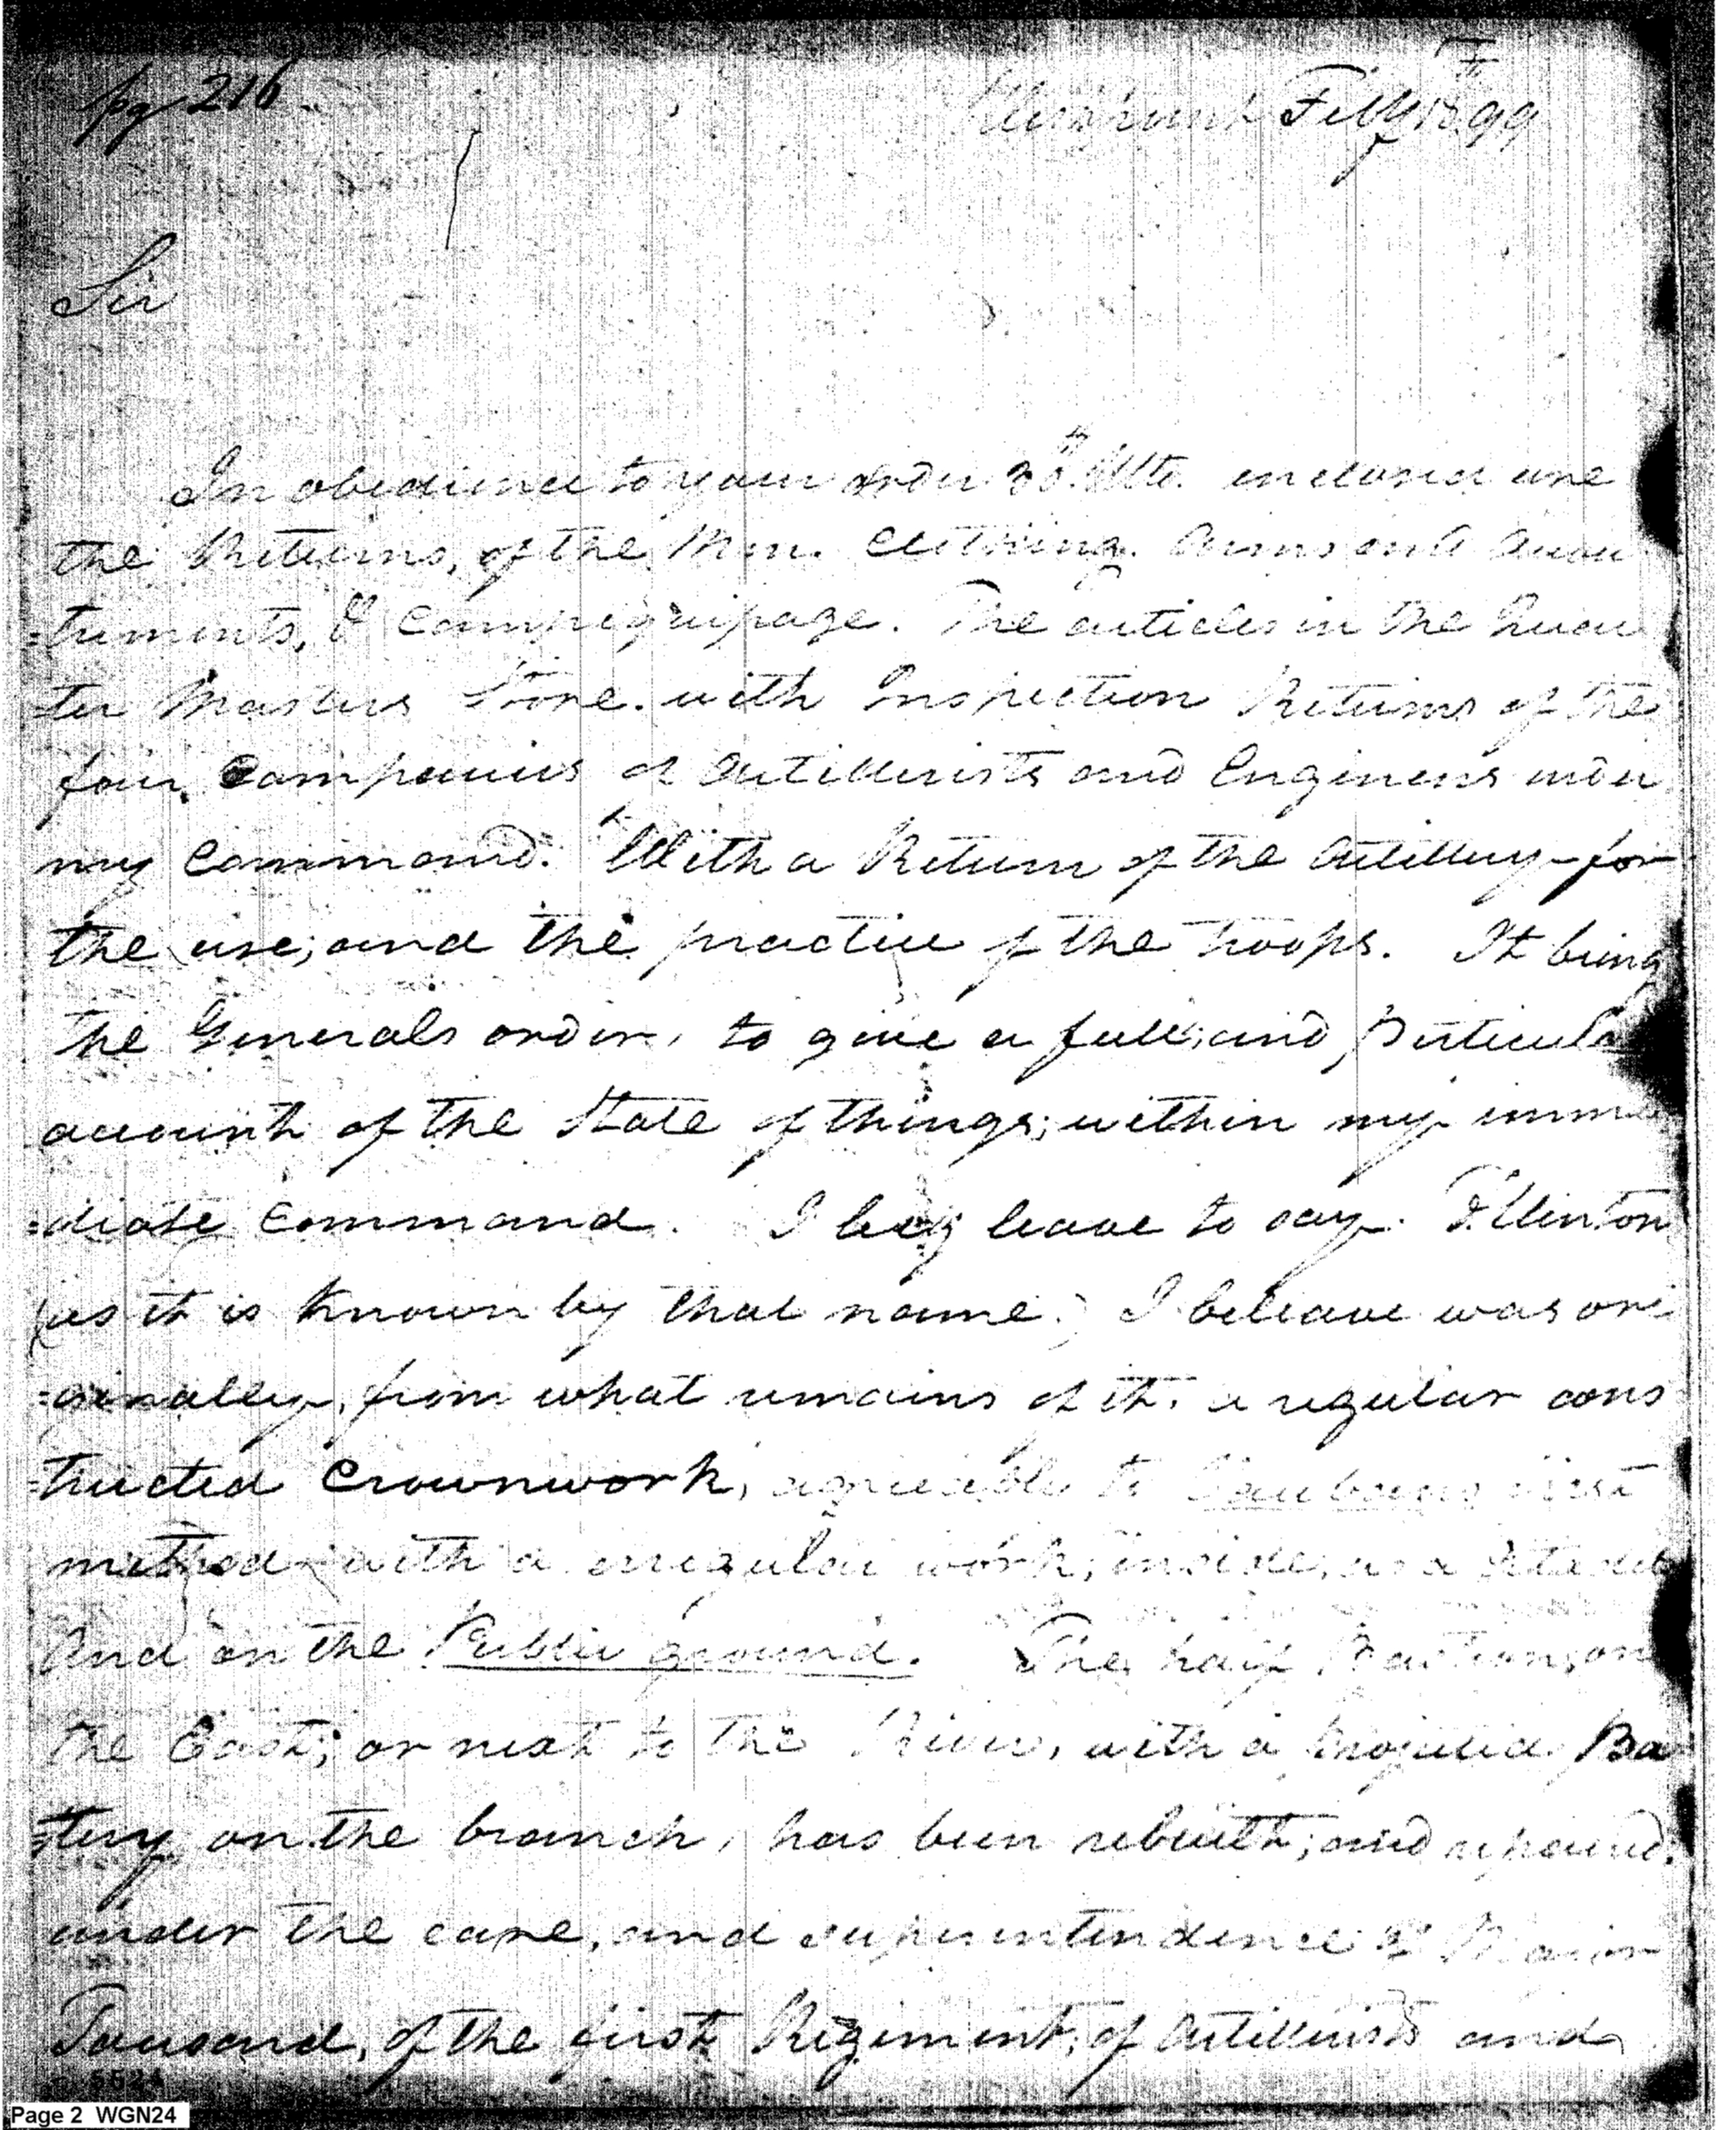 pg 216
Feby 18th 99
Sir
In obedience to your order 30th Ulto. enclosed are
the Returns, of the Men. Clothing. Arms and Accou
=truments, & Campequipage. The articles in the Quar
=ter Masters Store. with Inspection Returns of the
four Companies of Artillerists and Engineers under
my Command. With a Return of the Artillery for
the use, and the practice of the troops. It being
the Generals order, to give a full, and, Particular
account of the State of things; within my imme
=diate Command. I beg leave to say. F. Clinton
(as it is known by that name.) I beleave was ori
=ginally, from what remains of it. a regular cons
=tructed Crownwork, agreeable to Vaubans first
method with a irregular work, inside, as a Citadel
And on the Public ground. The half Bastion, on
the East; or next to the River, with a Projected Ba
=ttery on the branch, has been rebuilt; and repaired.
under the care, and superintendence of Major
Tousard, of the first Regiment, of Artillerists and
Page 2 WGN24